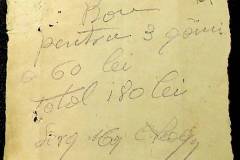 Bon
pentru 3 găini
a 60 lei
total 180 lei